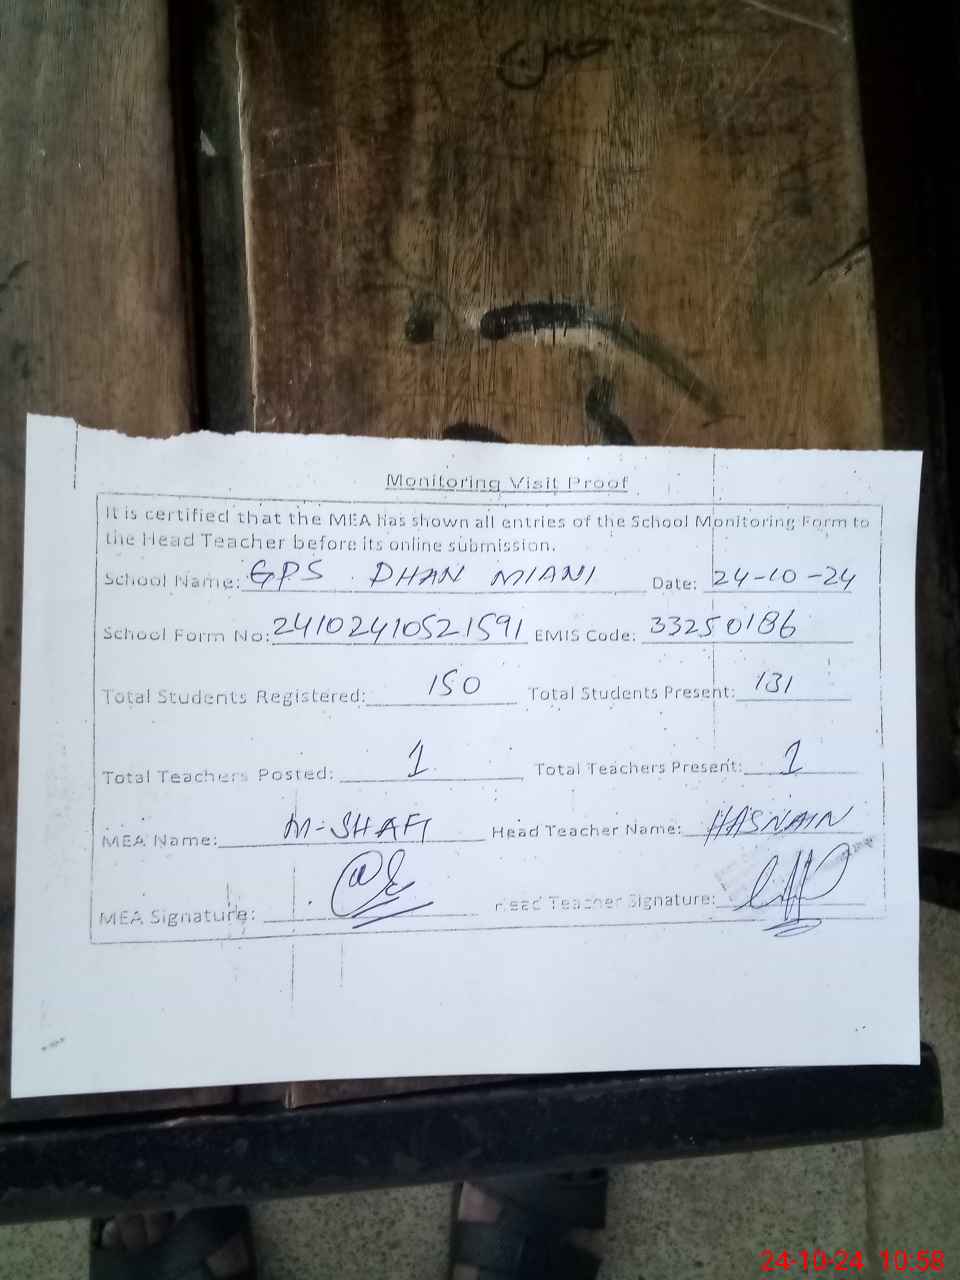 Monitoring Visit Proof
It is certified that the MEA has shown all entries of the School Monitoring Form to
the Head Teacher before its online submission.
School Name: GPS DHAN MIANI Date: 24-10-24
School Form No: 24102410521591 EMIS Code: 33250186
Total Students Registered: 150 Total Students Present: 131
Total Teachers Posted: 1 Total Teachers Present: 1
MEA Name: M-SHAFI Head Teacher Name: HASNAIN
MEA Signature: Head Teacher Signature:
24-10-24 10:58